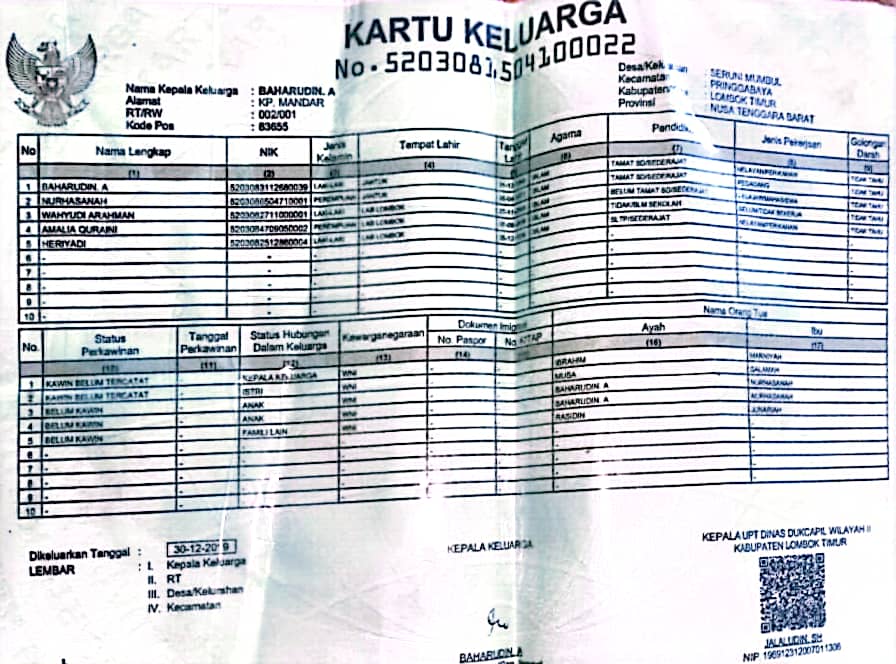 KARTU KELUARGA
No. 5203081504100022
Nama Kepala Keluarga : BAHARUDIN. A
Alamat : KP. MANDAR
RT/RW : 002/001
Kode Pos : 83655
: SERUNI MUMBUL
Kecamatan : PRINGGABAYA
Kabupaten : LOMBOK TIMUR
Provinsi : NUSA TENGGARA BARAT
No Nama Lengkap NIK Jenis Kelamin Tempat Lahir Agama Jenis Pekerjaan Golongan Darah
(1) (2) (3) (4) (6) (7) (8) (9)
1 BAHARUDIN. A LAKI-LAKI JANTUR ISLAM TAMAT SD/SEDERAJAT NELAYAN/PERIKANAN TIDAK TAHU
2 NURHASANAH PEREMPUAN JANTUR ISLAM TAMAT SD/SEDERAJAT PEDAGANG TIDAK TAHU
3 WAHYUDI ARAHMAN LAKI-LAKI LAB LOMBOK ISLAM BELUM TAMAT SD/SEDERAJAT PELAJAR/MAHASISWA TIDAK TAHU
4 AMALIA QURAINI PEREMPUAN LAB LOMBOK ISLAM TIDAK/BLM SEKOLAH BELUM/TIDAK BEKERJA TIDAK TAHU
5 HERIYADI LAKI-LAKI LAB LOMBOK ISLAM SLTP/SEDERAJAT NELAYAN/PERIKANAN TIDAK TAHU
6 -
7 -
8 -
9 -
10 -
No. Status Perkawinan Tanggal Perkawinan Status Hubungan Dalam Keluarga Kewarganegaraan Dokumen Imigrasi Nama Orang Tua
No. Paspor No. KITAP Ayah Ibu
(10) (11) (12) (13) (14) (16) (17)
1 KAWIN BELUM TERCATAT - KEPALA KELUARGA WNI - IBRAHIM
2 KAWIN BELUM TERCATAT - ISTRI WNI - MUSA SALAMAH
3 BELUM KAWIN - ANAK WNI - BAHARUDIN. A NURHASANAH
4 BELUM KAWIN - ANAK WNI - BAHARUDIN. A NURHASANAH
5 BELUM KAWIN - FAMILI LAIN WNI - RASIDIN JUNARIAH
6 -
7 -
8 -
9 -
10 -
Dikeluarkan Tanggal : 30-12-2019
LEMBAR : I. Kepala Keluarga
II. RT
III. Desa/Kelurahan
IV. Kecamatan
KEPALA KELUARGA
BAHARUDIN. A
KEPALA UPT DINAS DUKCAPIL WILAYAH II
KABUPATEN LOMBOK TIMUR
JALALUDIN, SH
NIP. 196912312007011306